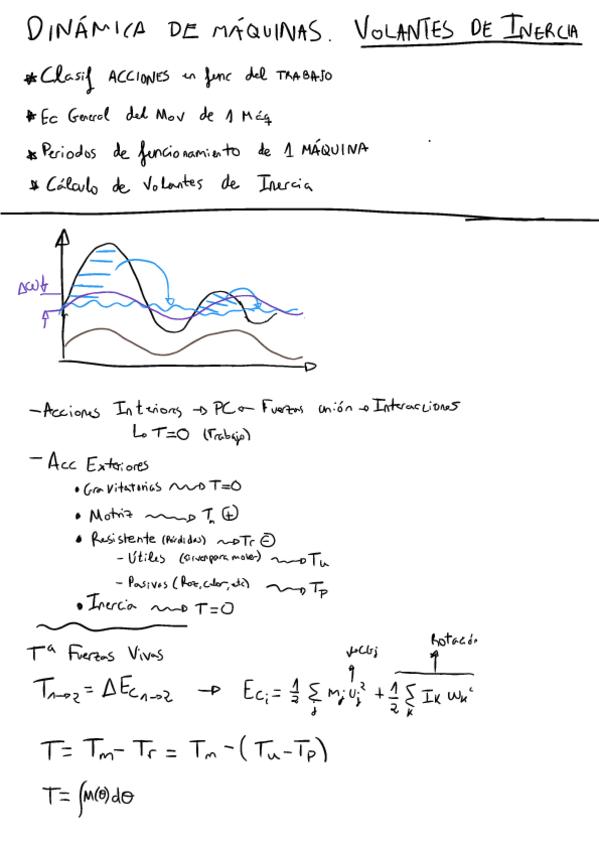 DINÁMICA DE MÁQUINAS. VOLANTES DE INERCIA
* Clasif ACCIONES en func del TRABAJO
* Ec General del Mov de 1 Máq
* Periodos de funcionamiento de 1 MÁQUINA
* Cálculo de Volantes de Inercia
Δω
- Acciones Interiores → PC ← Fuerzas unión → Interacciones
↳ T=0 (Trabajo)
- Acc Exteriores
• Gravitatorias → T=0
• Motriz → Tm ⊕
• Resistente (Pérdidas) → Tr ⊖
- Útiles (sirven para mover) → Tu
- Pasivas (Roz, calor, etc) → Tp
• Inercia → T=0
Tª Fuerzas Vivas
Rotación
T1→2 = ΔEc1→2 → Eci = 1/2 Σj mj vj² + 1/2 Σk Ik ωk²
T = Tm - Tr = Tm - (Tu - Tp)
T = ∫M(θ)dθ